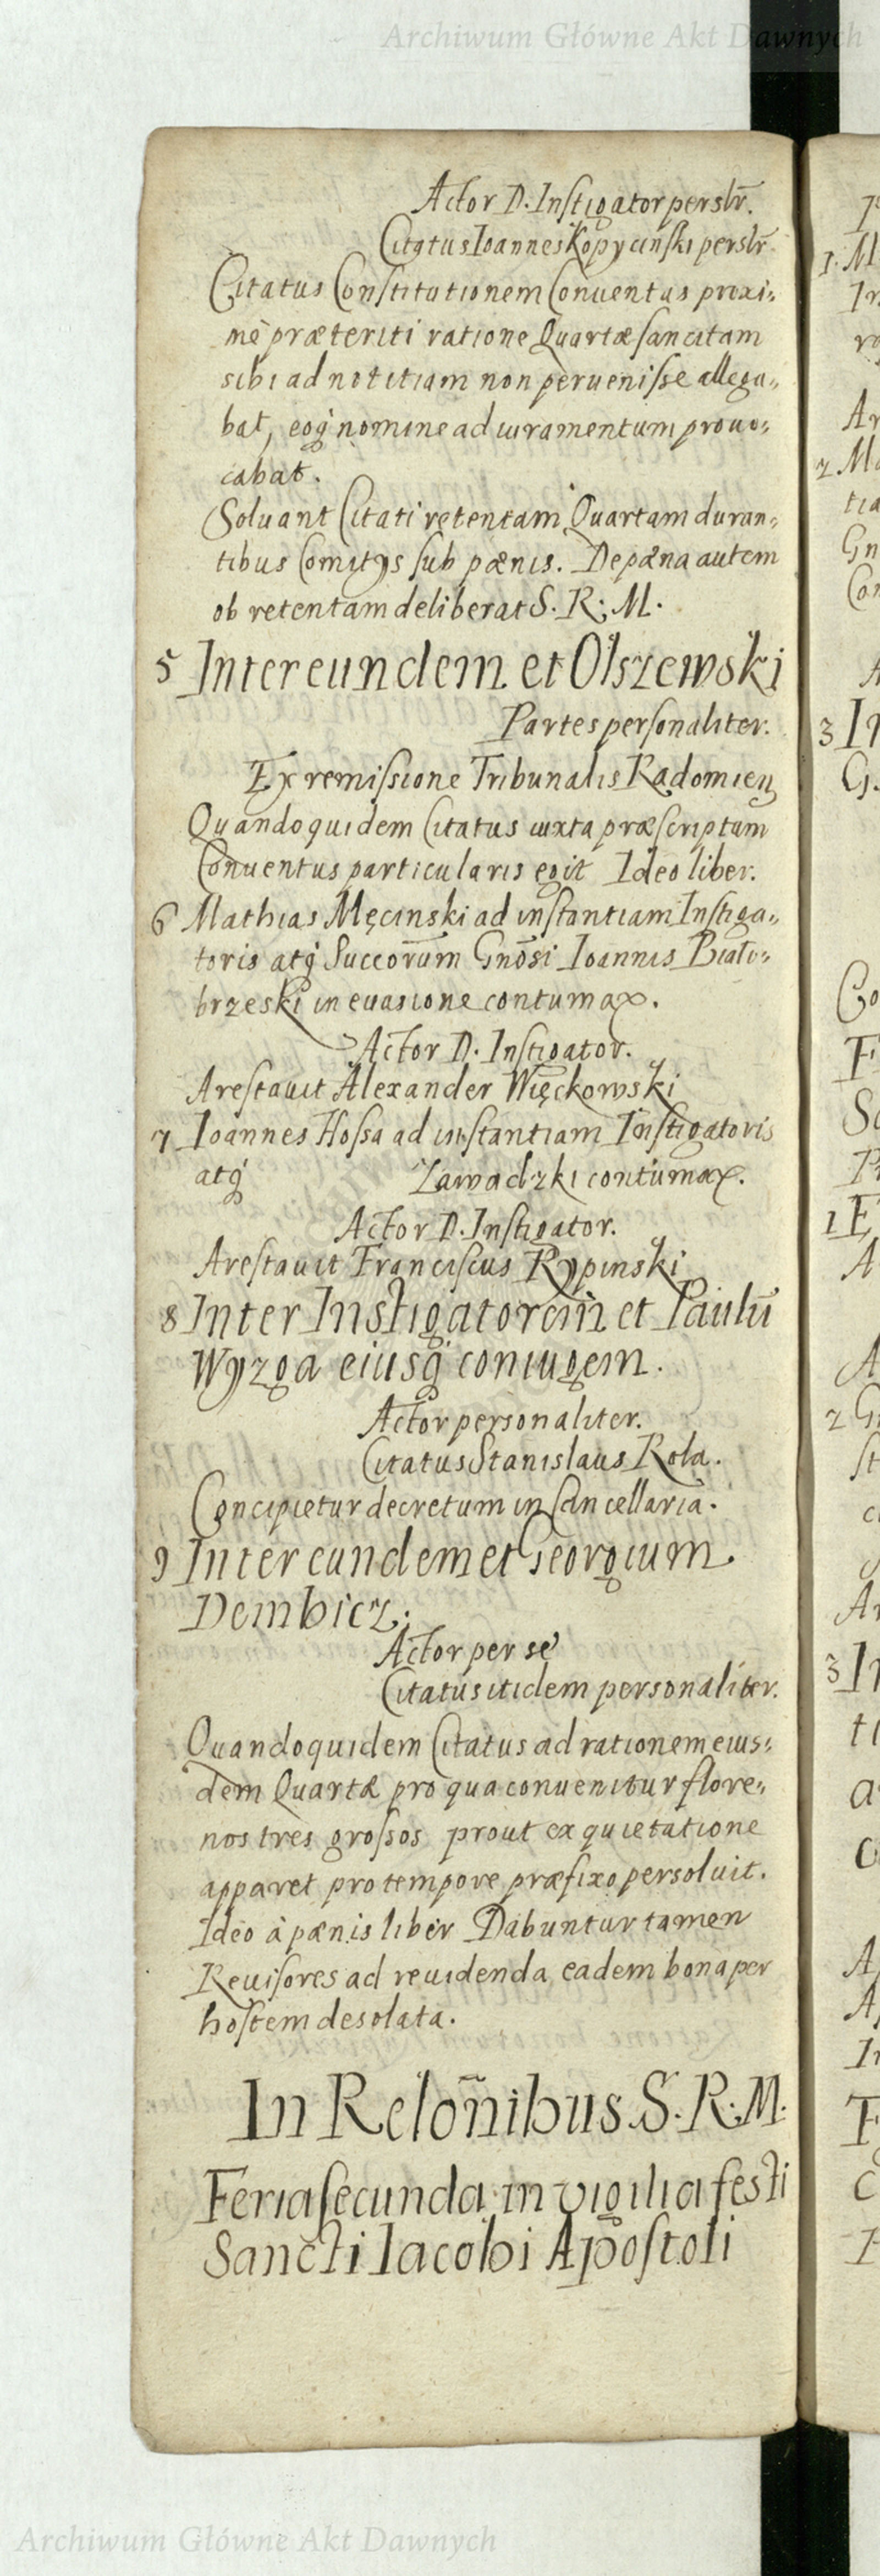 Archiwum Główne Akt Dawnych
Actor D. Instigator perstr̄.
Citatus Ioannes Kopycinski perstr̄
Citatus Constitutionem Conuentus proxi:
mè præteriti ratione Quartæ sancitam
sibi ad notitiam non peruenisse allega:
bat, eoq́ nomine ad iuramentum prouo:
cabat.
Soluant Citati retentam Quartam duran:
tibus Comitijs sub pænis. De pæna autem
ob retentam deliberat S. R. M.
5 Inter eundem et Olszewski
Partes personaliter.
Ex remissione Tribunalis Radomien
Quandoquidem Citatus iuxta præscriptum
Conuentus particularis egit Ideo liber.
6 Mathias Męcinski ad instantiam Instiga:
toris atq́ Succorūm Gnōsi Ioannis Biało:
brzeski in euasione contumax.
Actor D. Instigator.
Arestauit Alexander Więckowski
7 Ioannes Hossa ad instantiam Instigatoris
atq́ Zawadzki contumax.
Actor D. Instigator.
Arestauit Franciscus Rypinski
8 Inter Instigatorem et Paulū
Wyzga eiusq́ coniugem.
Actor personaliter.
Citatus Stanislaus Rola.
Concipietur decretum in Cancellaria.
9 Inter eundem et Georgium
Dembicz.
Actor per se
Citatus itidem personaliter.
Quandoquidem Citatus ad rationem eius:
dem Quartæ pro qua conuenitur flore:
nos tres grossos prout ex quietatione
apparet pro tempore præfixo persoluit.
Ideo à pænis liber Dabuntur tamen
Reuisores ad reuidenda eadem bona per
hostem desolata.
In Relon̄ibus S. R. M.
Feria secunda in vigilia festi
Sancti Iacobi Apostoli
Archiwum Główne Akt Dawnych